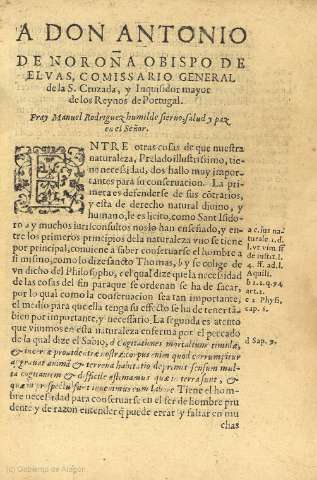 A DON ANTONIO
DE NOROÑA OBISPO DE
ELVAS, COMISSARIO GENERAL
de la S. Cruzada, y Inquisidor mayor
de los Reynos de Portugal.
Fray Manuel Rodriguez humilde sieruo, salud y paz
en el Señor.
ENTRE otras cosas de que nuestra
naturaleza, Prelado illustrissimo, tie-
ne necessidad, dos hallo muy impor-
tantes para su conseruacion. La pri-
mera es defenderse de sus cõtrarios,
y esta de derecho natural diuino, y
humano, le es licito, como Sant Isido-
ro a y muchos iurisconsultos nos lo han enseñado, y en-
tre los primeros principios de la naturaleza vno se tiene
por principal, conuiene a saber conseruarse el hombre a
si mismo, como lo dize sancto Thomas, b y se colige de
vn dicho del Philosopho, c el qual dize que la necessidad
de las cosas del fin para que se ordenan se ha de sacar,
por lo qual como la conseruacion sea tan importante,
el medio para que ella tenga su effecto se ha de tener tã
bien por importante, y necessario. La segunda es atento
que viuimos en esta naturaleza enferma por el peccado
de la qual dize el Sabio, d Cogitationes mortalium timidæ,
& incertæ prouidentiæ nostræ: corpus enim quod corrumpitur
aggrauat animã & terrena habitatio deprimit sensum mul-
ta cogitantem & difficile æstimamus quæ in terra sunt, &
quæ in prospectu sunt inuenimus cum labore. Tiene el hom-
bre necessidad para conseruarse en el ser de hombre pru
dente y de razon entender q̃ puede errar y faltar en mu
chas
a c. ius na-
turale 1. d.
d Sap. 9.
c 1 Phys.
cap. 6.
(c) Gobierno de Aragón